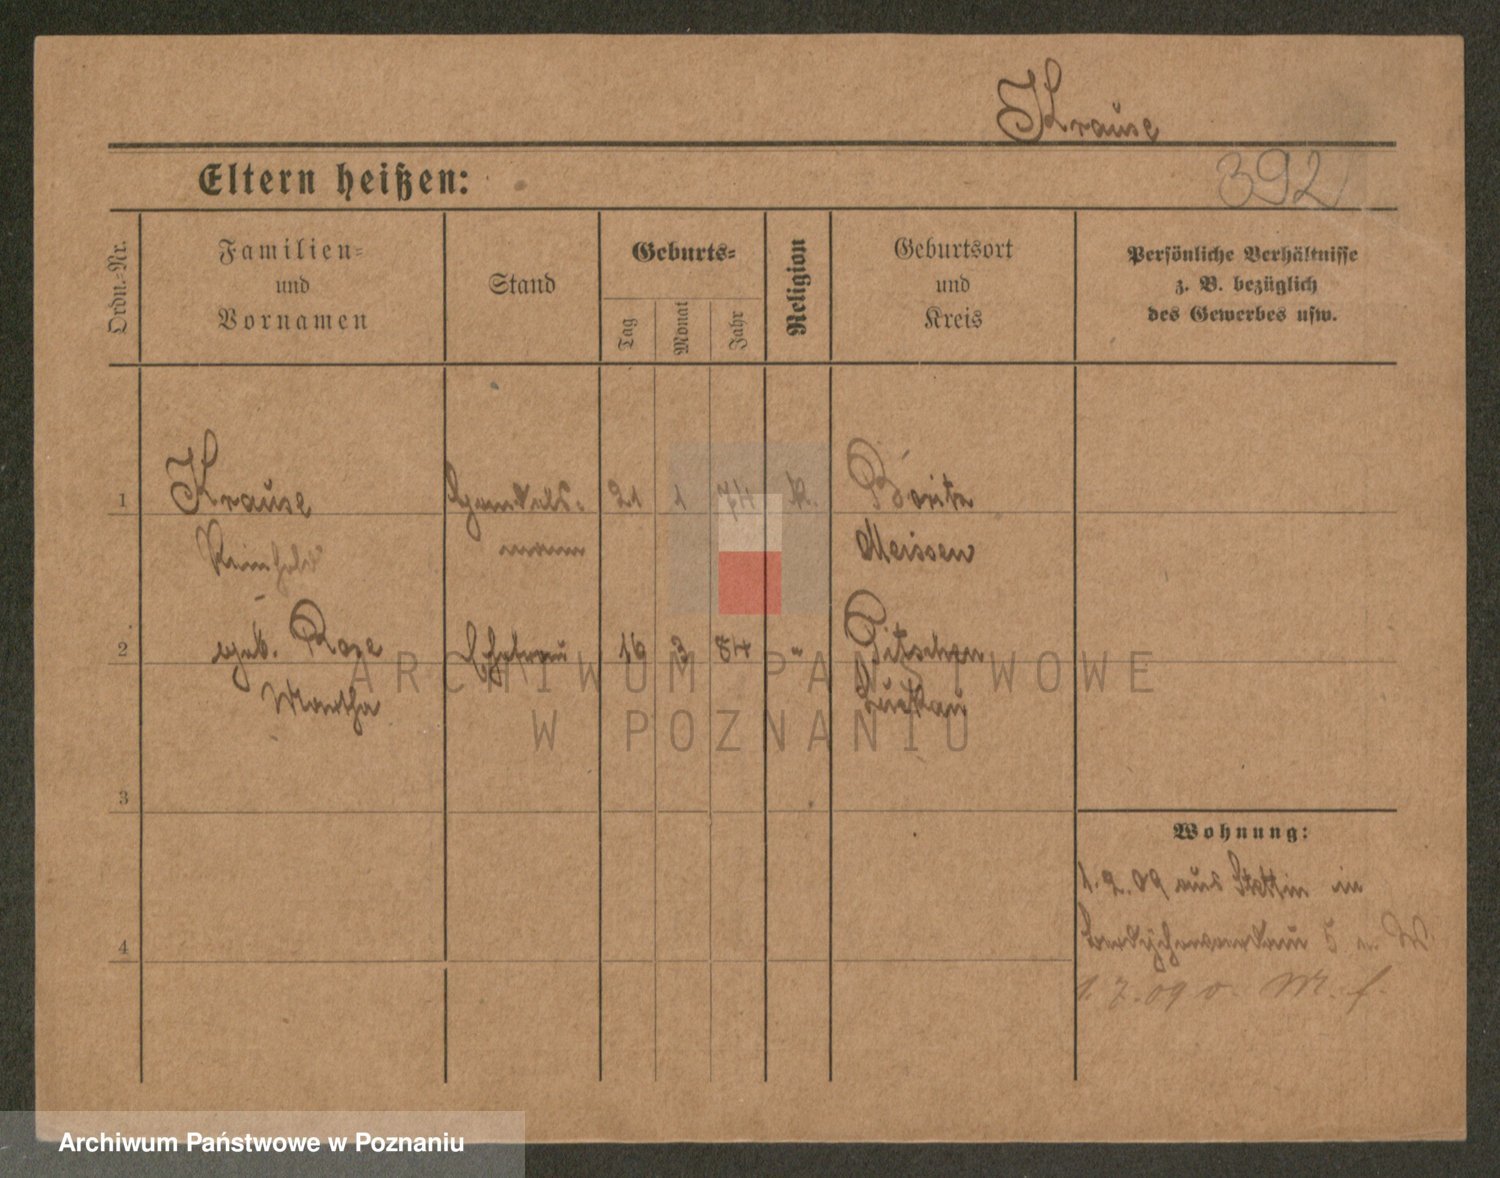 Krause
Eltern heißen:
392
Ordn.-Nr.
Familien-
und
Vornamen
Stand
Geburts-
Tag
Monat
Jahr
Religion
Geburtsort
und
Kreis
Persönliche Verhältnisse
z. B. bezüglich
des Gewerbes usw.
1
Krause
Handels-
21
1
74
K.
Boritz
Reinhold
mann
Meissen
2
geb. Rose
Ehefrau
16
3
84
"
Pitschen
Martha
Luckau
ARCHIWUM PAŃSTWOWE
W POZNANIU
3
Wohnung:
1.2.09 aus Stettin in
5
W
4
1.7.09 v. M. f.
Archiwum Państwowe w Poznaniu